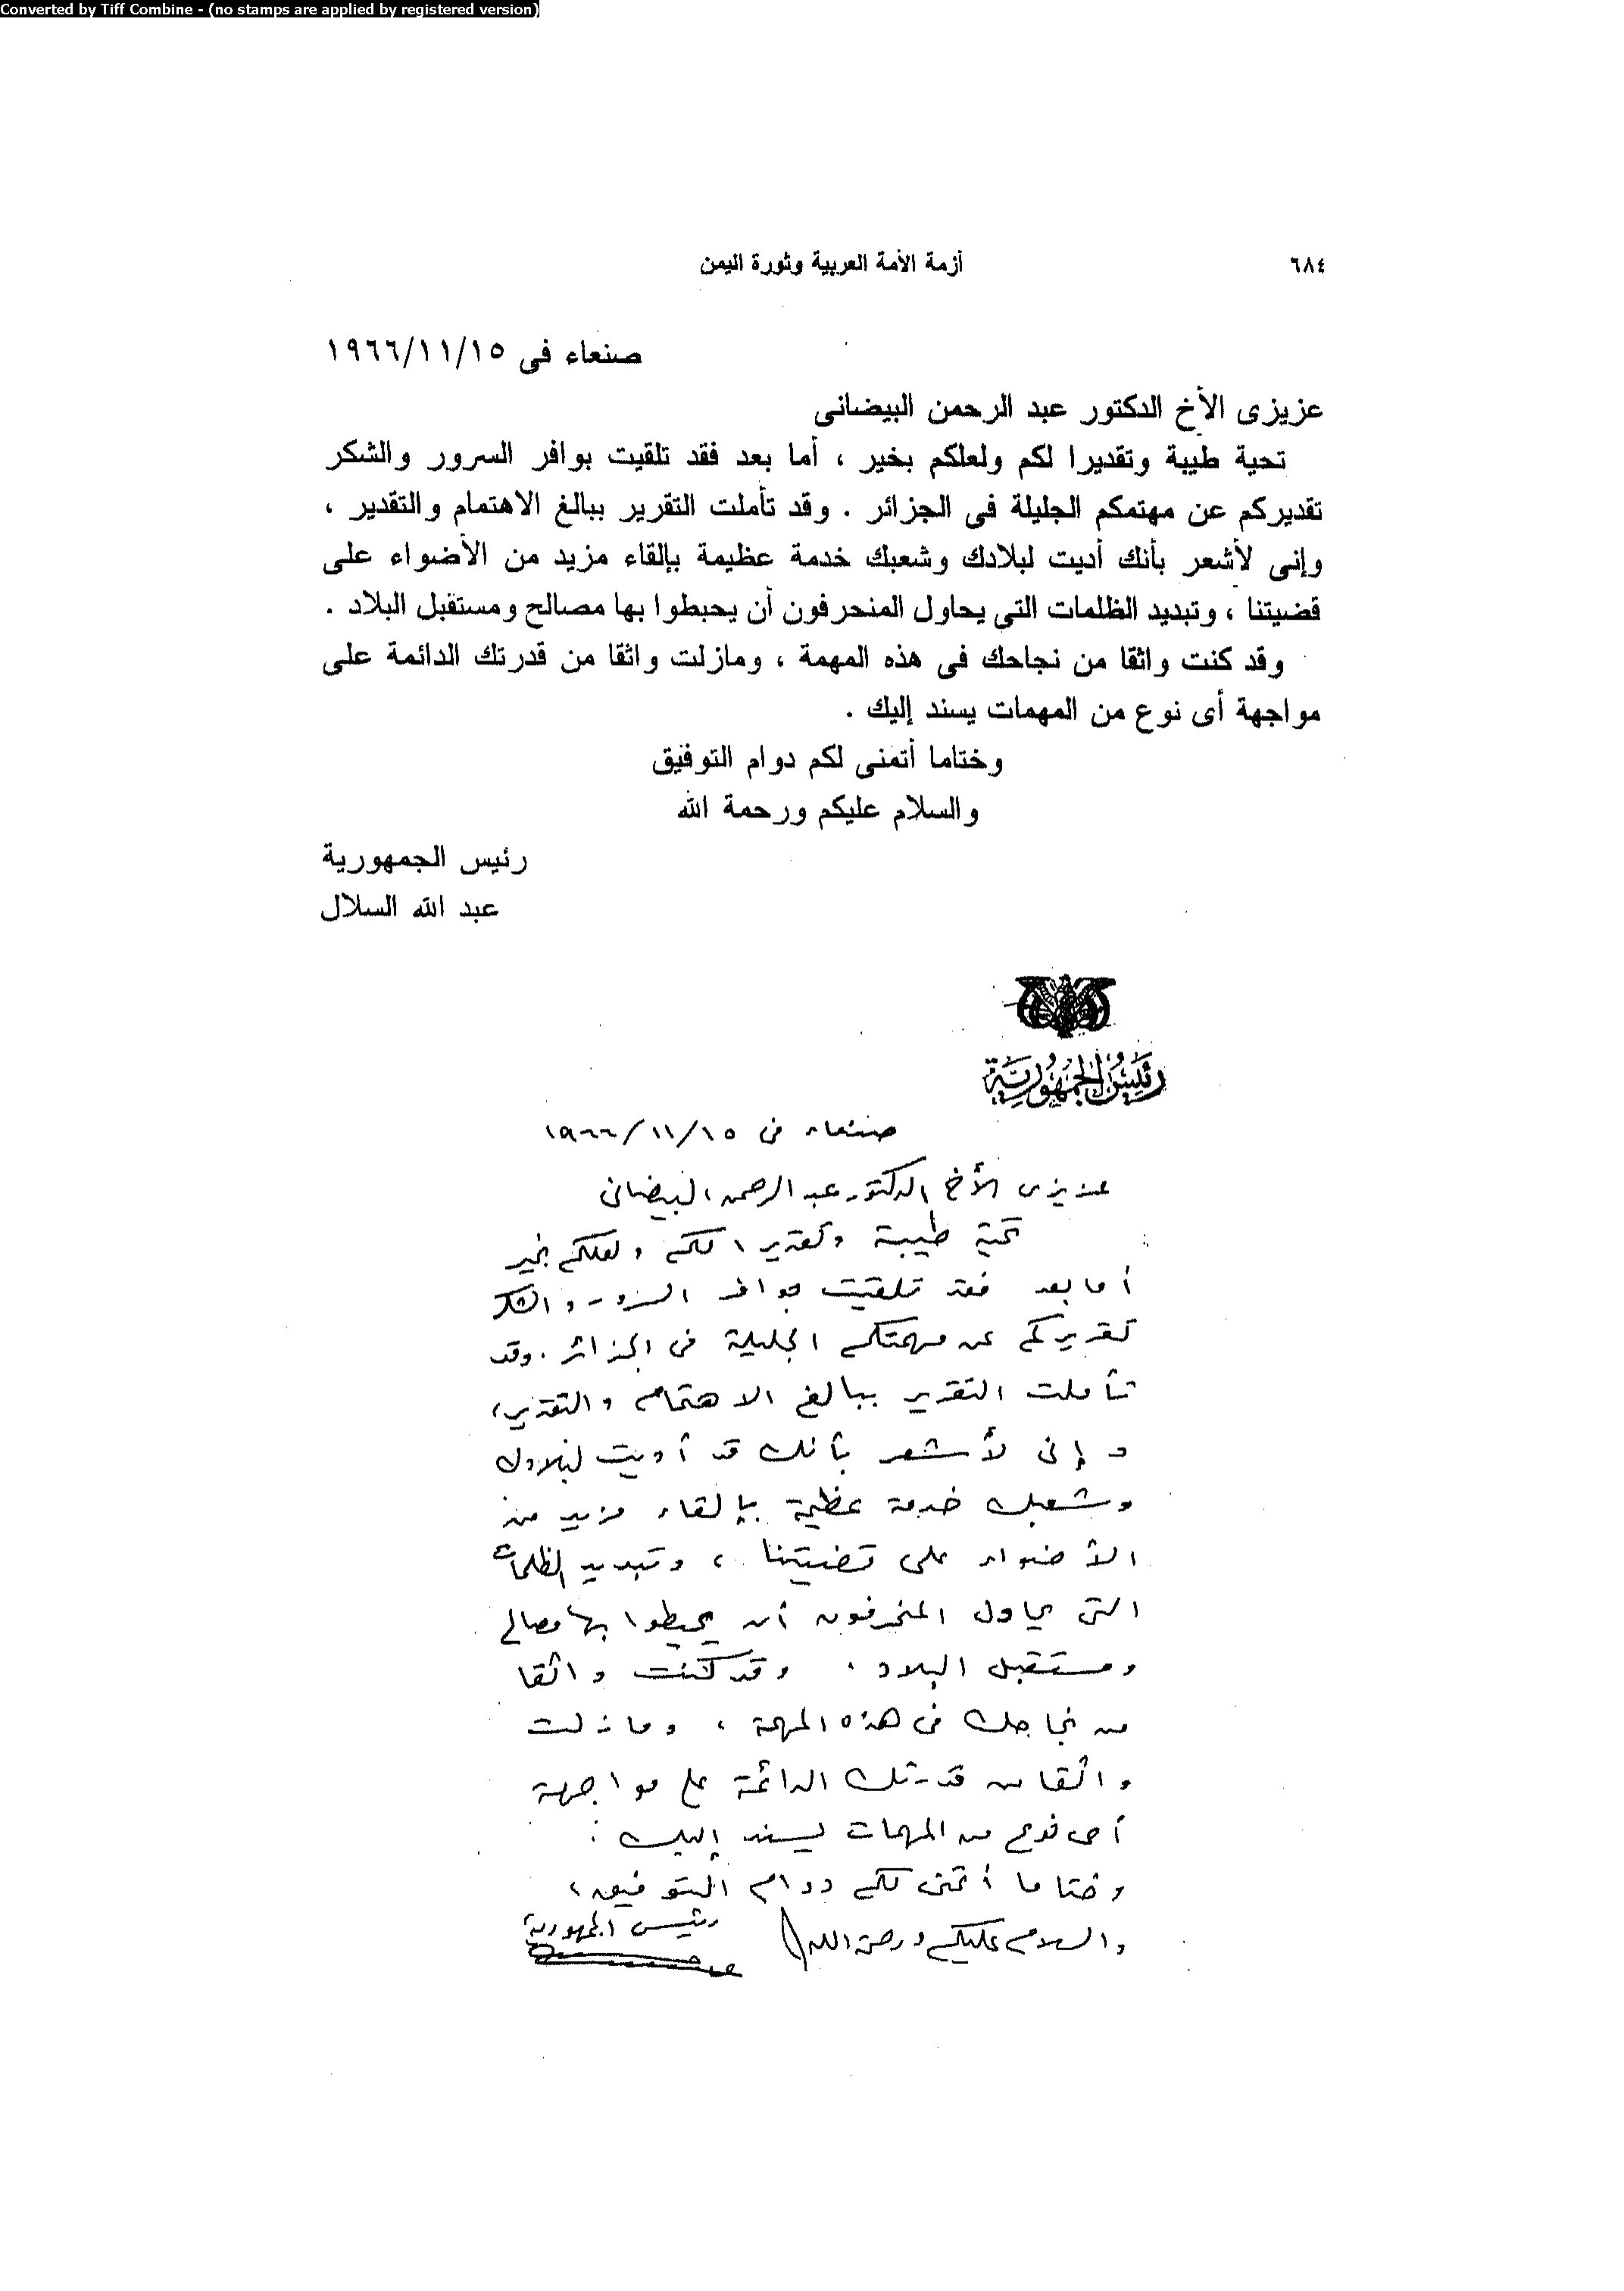 Converted by Tiff Combine - (no stamps are applied by registered version)
٦٨٤ أزمة الأمة العربية وثورة اليمن
صنعاء فى ١٩٦٦/١١/١٥
عزيزى الأخ الدكتور عبد الرحمن البيضانى
تحية طيبة وتقديرا لكم ولعلكم بخير ، أما بعد فقد تلقيت بوافر السرور والشكر
تقديركم عن مهتمكم الجليلة فى الجزائر . وقد تأملت التقرير ببالغ الاهتمام والتقدير ،
وإنى لأشعر بأنك أديت لبلادك وشعبك خدمة عظيمة بإلقاء مزيد من الأضواء على
قضيتنا ، وتبديد الظلمات التى يحاول المنحرفون أن يحبطوا بها مصالح ومستقبل البلاد .
وقد كنت واثقا من نجاحك فى هذه المهمة ، ومازلت واثقا من قدرتك الدائمة على
مواجهة أى نوع من المهمات يسند إليك .
وختاما أتمنى لكم دوام التوفيق
والسلام عليكم ورحمة الله
رئيس الجمهورية
عبد الله السلال
رئيس الجمهورية
صنعاء فى ١٩٦٦/١١/١٥
عزيزى الأخ الدكتور عبد الرحمن البيضانى
تحية طيبة وتقديرا لكم ولعلكم بخير
أما بعد فقد تلقيت بوافر السرور والشكر
تقريركم عن مهمتكم الجليلة فى الجزائر . وقد
تأملت التقرير ببالغ الاهتمام والتقدير ،
وإنى لأشعر بأنك قد أديت لبلادك
وشعبك خدمة عظيمة بإلقاء مزيد من
الأضواء على قضيتنا ، وتبديد الظلمات
التى يحاول المنحرفون أن يحيطوا بها مصالح
ومستقبل البلاد . وقد كنت واثقا
من نجاحك فى هذه المهمة ، ومازلت
واثقا من قدرتك الدائمة على مواجهة
أى نوع من المهمات يسند إليك .
وختاما أتمنى لكم دوام التوفيق ،
والسلام عليكم ورحمة الله
رئيس الجمهورية